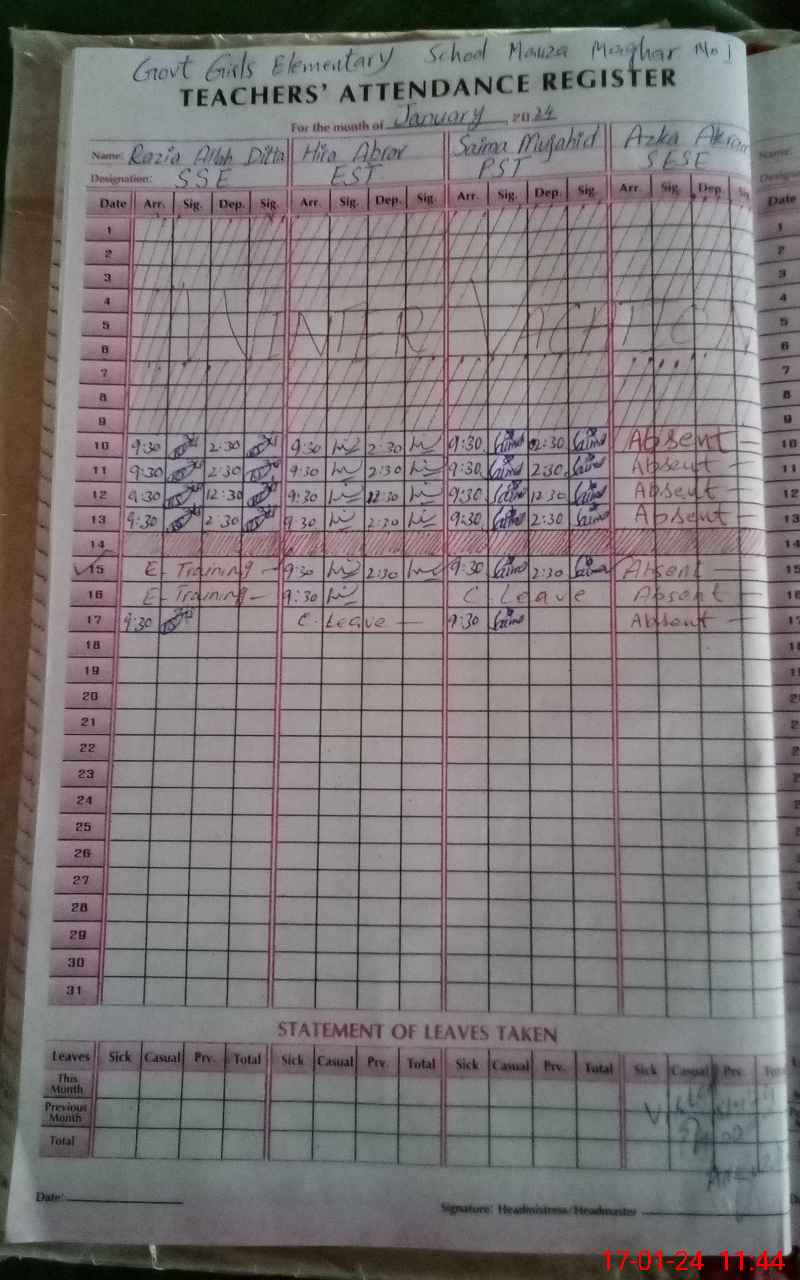 Govt Girls Elementary School Mauza Maghar No 1
TEACHERS' ATTENDANCE REGISTER
For the month of January, 2024
Name: Razia Allah Ditta Hira Abrar Saima Mujahid Azka Akram
Designation: SSE EST PST SESE
Date Arr. Sig. Dep. Sig. Arr. Sig. Dep. Sig. Arr. Sig. Dep. Sig. Arr. Sig. Dep. Sig.
1
2
3
4
5 WINTER VACATION
6
7
8
9
10 9:30 2:30 9:30 2:30 9:30 2:30 Absent
11 9:30 2:30 9:30 2:30 9:30 2:30 Absent
12 9:30 12:30 9:30 12:30 9:30 12:30 Absent
13 9:30 2:30 9:30 2:30 9:30 2:30 Absent
14
15 E-Training 9:30 2:30 9:30 2:30 Absent
16 E-Training 9:30 C. Leave Absent
17 9:30 C. Leave 9:30 Absent
18
19
20
21
22
23
24
25
26
27
28
29
30
31
STATEMENT OF LEAVES TAKEN
Leaves Sick Casual Prv. Total Sick Casual Prv. Total Sick Casual Prv. Total Sick Casual Prv. Total
This Month
Previous Month
Total
Date:
Signature: Headmistress/Headmaster
17-01-24 11:44